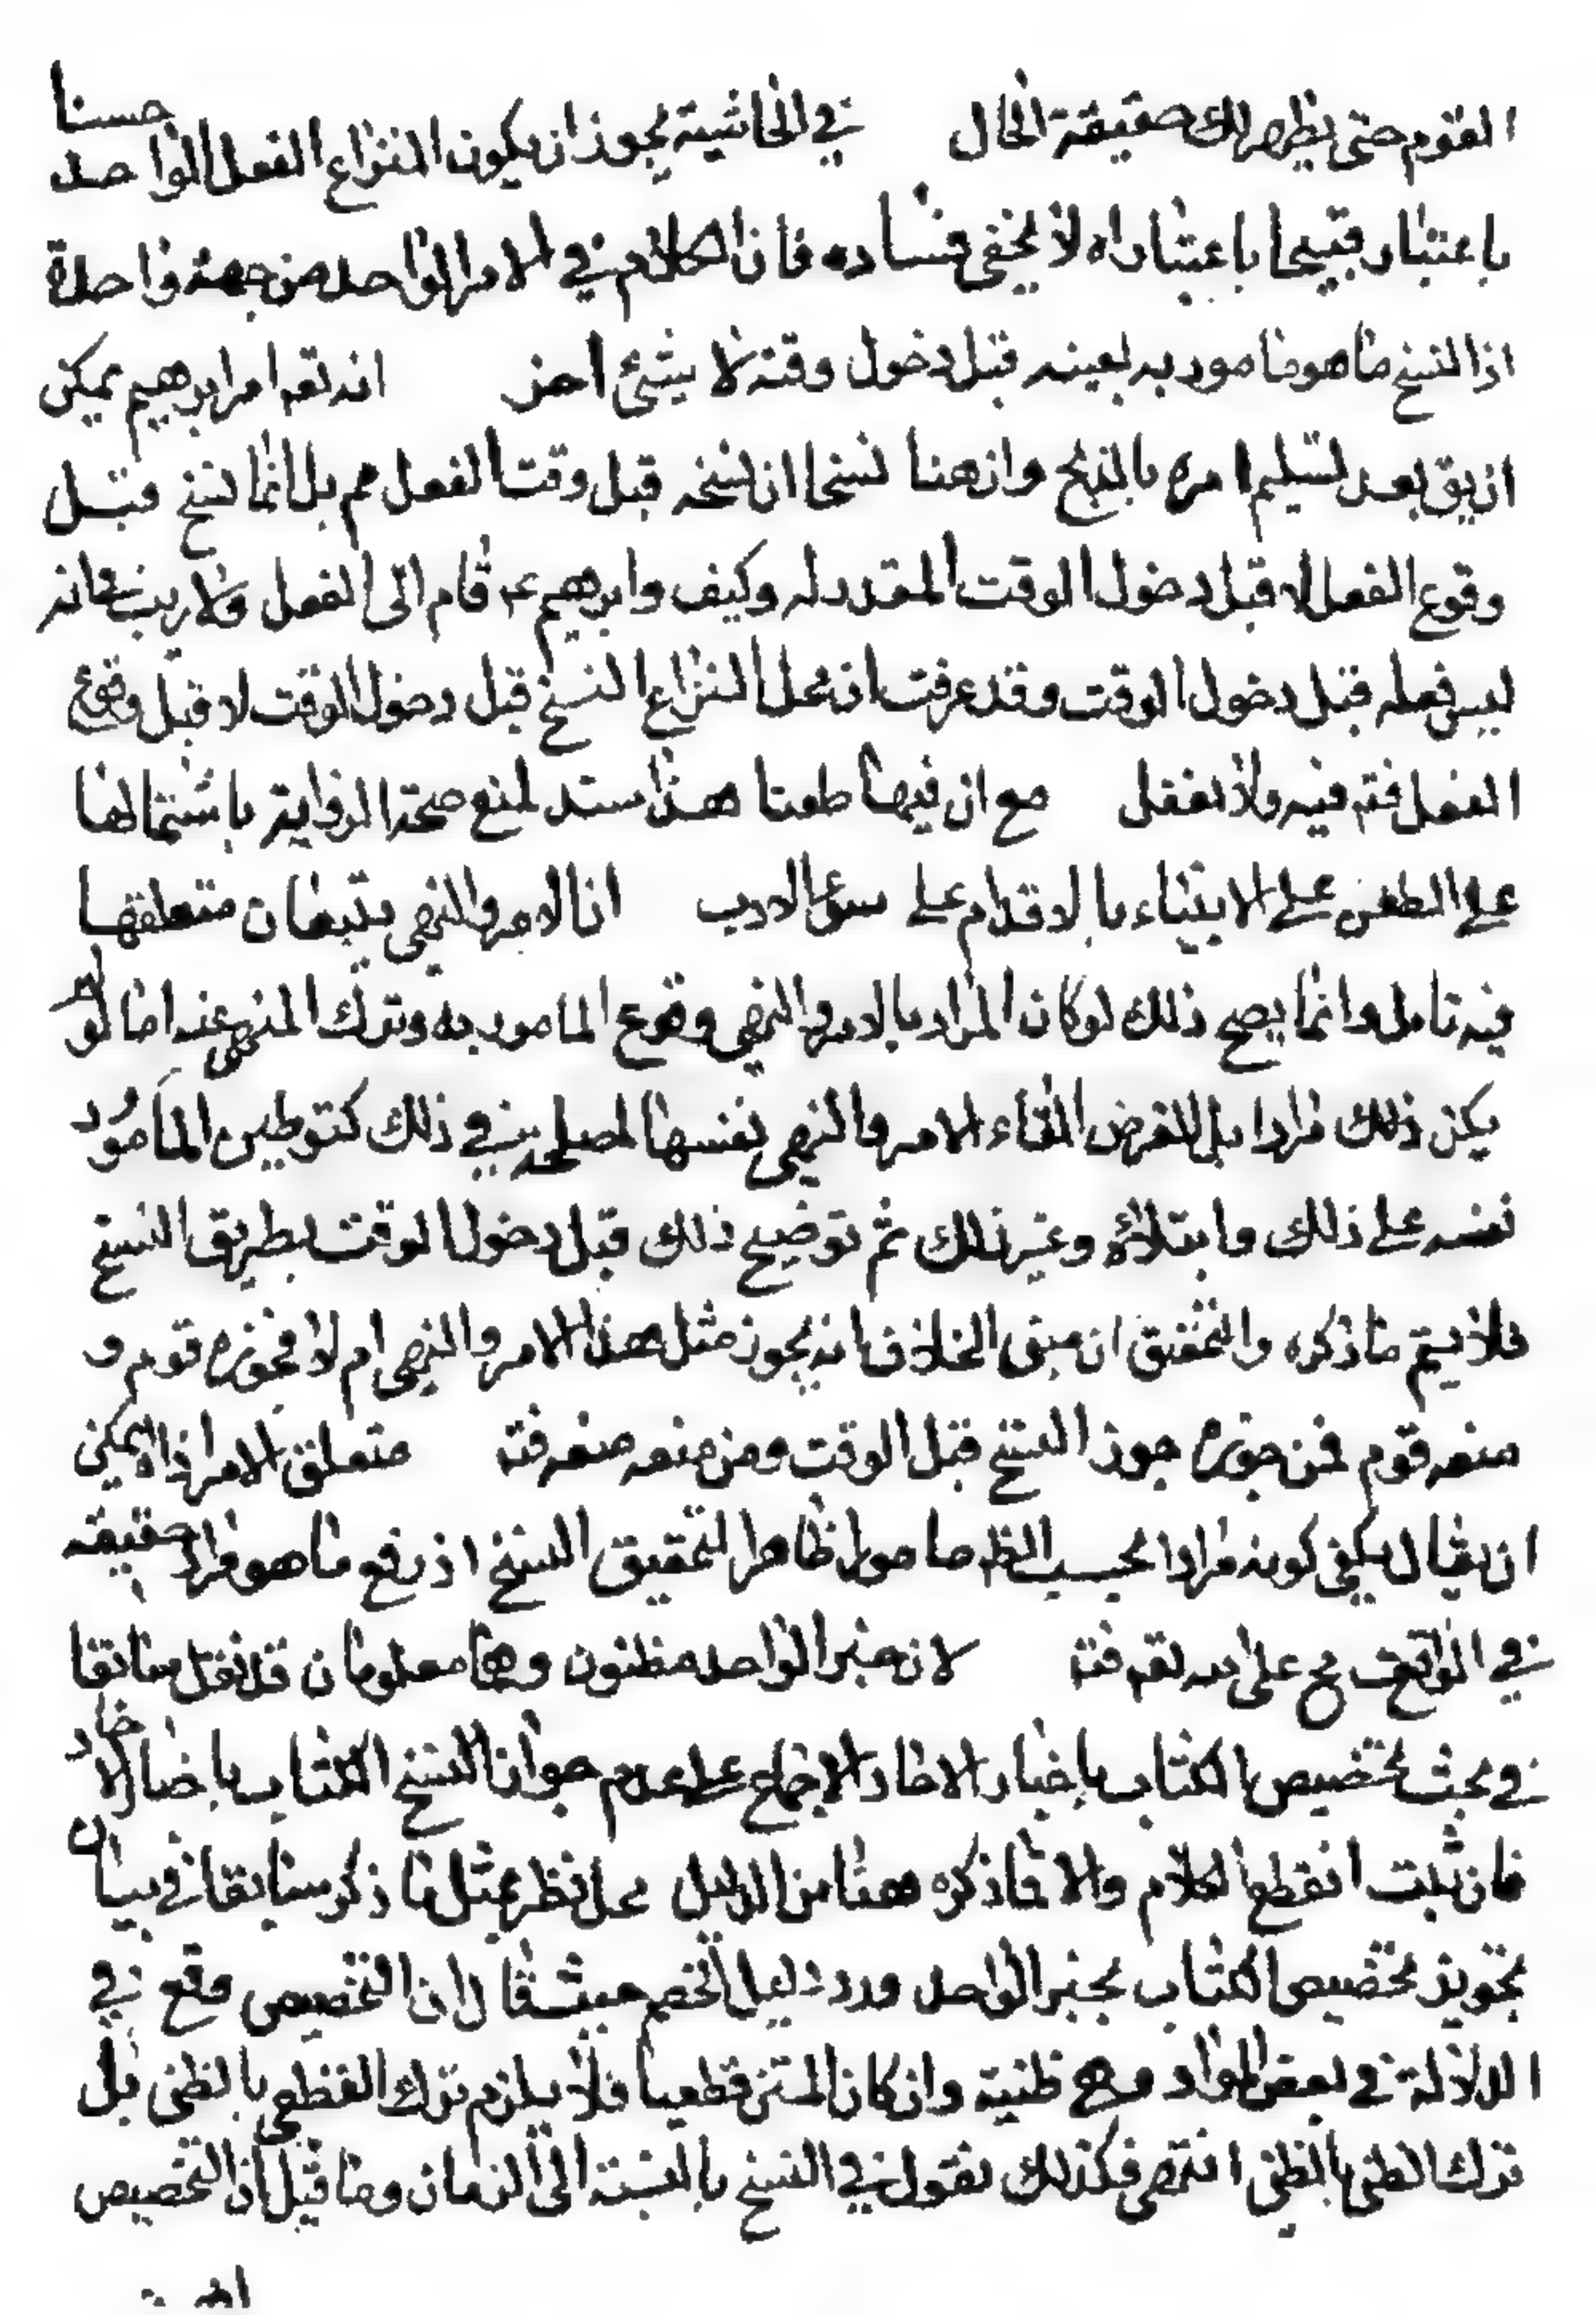 القوم حتى يظهر لك حقيقة الحال في الحاشية يجوز ان يكون النزاع الفعل الواحد حسنا
باعتبار قبيحا باعتبار اه لا يخفى فساده فان الكلام في الامر الواحد من جهة واحدة
اذ النسخ ما هو مامور به بعينه قبل دخول وقته لا بشئ اخر انه تعه امر ابرهيم يمكن
ان يق بعد تسليم امره بالذبح وان هنا نسخا ان نسخه قبل وقت الفعل مم بل انما نسخ قبل
وقوع الفعل لا قبل دخول الوقت المقدر له وكيف وابرهيم عم قام الى الفعل ولا ريب في انه
ليس فعله قبل دخول الوقت وقد عرفت ان محل النزاع النسخ قبل دخول الوقت لا قبل وقوع
الفعل فته فيه ولا تغفل مع ان فيها طعنا هذا سند لمنع صحة الرواية باشتمالها
على الطعن على الانبياء بالاقدام على سوء الادب ان الامر والنهى يتبعان متعلقها
فيه تامل وانما يصح ذلك لو كان المراد بالامر والنهى وقوع المامور به وترك المنهى عنه اما لو لم
يكن ذلك مرادا بل الغرض القاء الامر والنهى نفسها لمصلحة في ذلك كتوطين المامور
نفسه على ذلك وابتلائه وغير ذلك ثم توضيح ذلك قبل دخول الوقت بطريق النسخ
فلا يتم ما ذكره والتحقيق ان مبنى الخلاف انه يجوز مثل هذا الامر والنهى ام لا فجوزه قوم و
منعه قوم فمن جوزه جوز النسخ قبل الوقت ومن منعه منعه فته متعلق الامر اذ اه يمكن
ان يقال يكفى كونه مرادا بحسب الظ مامورا ظاهرا لتحقيق النسخ اذ رفع ما هو مراد حقيقة
في الواقع مح على الله تعه فته لان خبر الواحد مظنون وهما معلومان قد نقل سابقا
في بحث تخصيص الكتاب باخبار الاحاد الاجماع على عدم جواز النسخ الكتاب باخبار الاحاد
فان ثبت انقطع الكلام والا فما ذكره ههنا من الدليل محل نظر بمثل ما ذكر سابقا في بيان
تجويز تخصيص الكتاب بخبر الواحد ورد دليل الخصم حيث قال ان التخصيص وقع في
الدلالة في بعض المواد وهى ظنية وان كان المتن قطعيا فلا يلزم ترك القطعى بالظنى بل
ترك الظنى بالظنى انتهى فكذلك نقول في النسخ بالنسبة الى الزمان وما قيل ان التخصيص